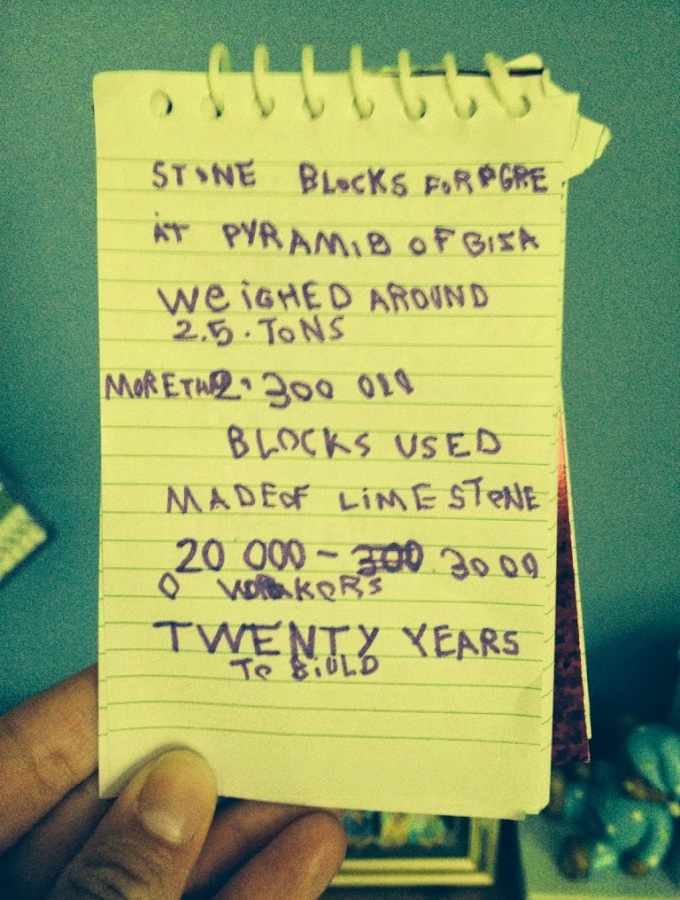 STONE BLOCKS FOR GRE
AT PYRAMID OF GIZA
WeiGHED AROUND
2.5. ToNS
MORETHAN 2. 300 000
BLOCKS USED
MADEOF LiMESTONE
20 000 - 300 3000
0 WORKERS
TWENTY YEARS
To BiULD